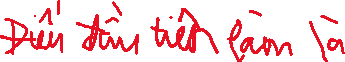 Điều đầu tiên làm là